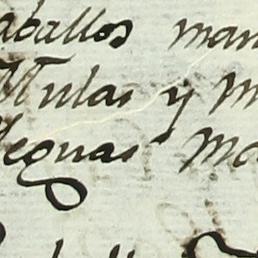 aballos man
Mulas y M
Yeguas Ma